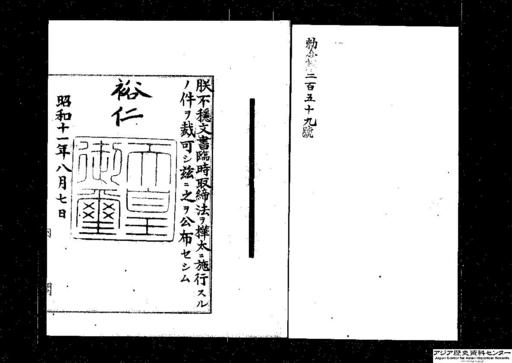 勅令第三百五十九號
朕不穏文書臨時取締法ヲ樺太ニ施行スル
ノ件ヲ裁可シ茲ニ之ヲ公布セシム
裕仁
天皇
御璽
昭和十一年八月七日
アジア歴史資料センター
Japan Center for Asian Historical Records